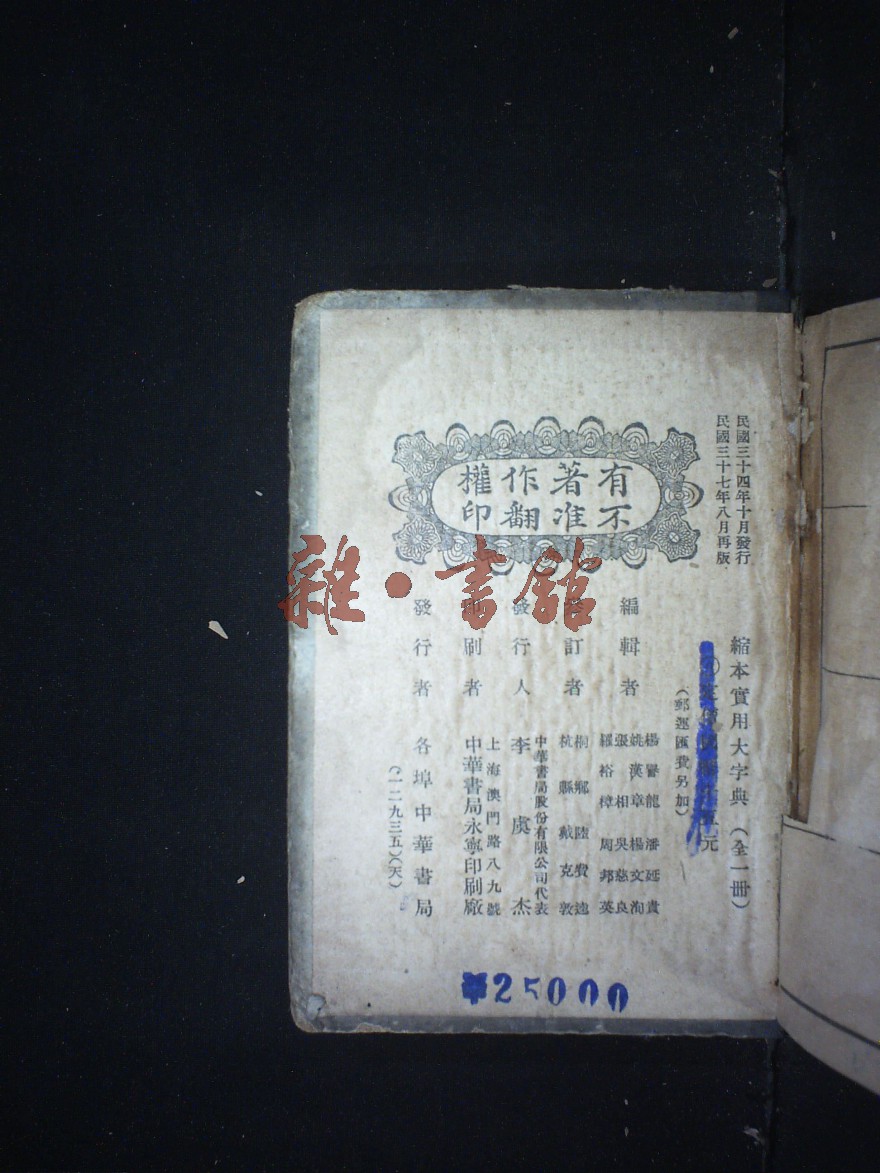 民國三十四年十月發行
民國三十七年八月再版
有著作權
不准翻印
縮本實用大字典(全一冊)
元
(郵運匯費另加)
編輯者
楊譽龍 潘延貴
姚漢章 楊文洵
張相 吳慈良
羅裕樟 周邦英
訂者
桐鄉陸費逵
杭縣戴克敦
發行人
中華書局股份有限公司代表
李虞杰
印刷者
上海澳門路八九號
中華書局永寧印刷廠
發行者
各埠中華書局
(一二九三五)(天)
25000
雜·書館